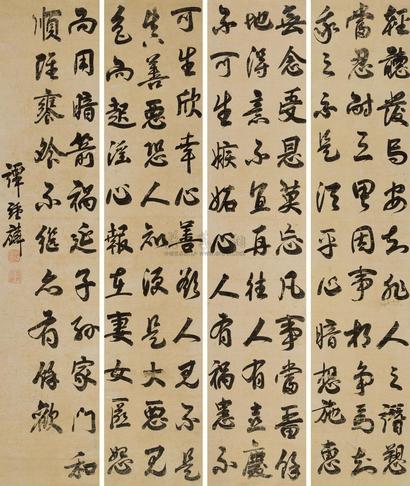 輕聽發言安知非人之譖愬
當忍耐三思因事相爭焉知
我之不是須平心暗想施惠
無念受恩莫忘凡事當留餘
地得意不宜再往人有喜慶
不可生嫉妬心人有禍患不
可生欣幸心善欲人見不是
真善惡恐人知便是大惡見
色而起淫心報在妻女匿怨
而用暗箭禍延子孫家門和
順雖饔飧不繼亦有餘歡
譚鍾麟